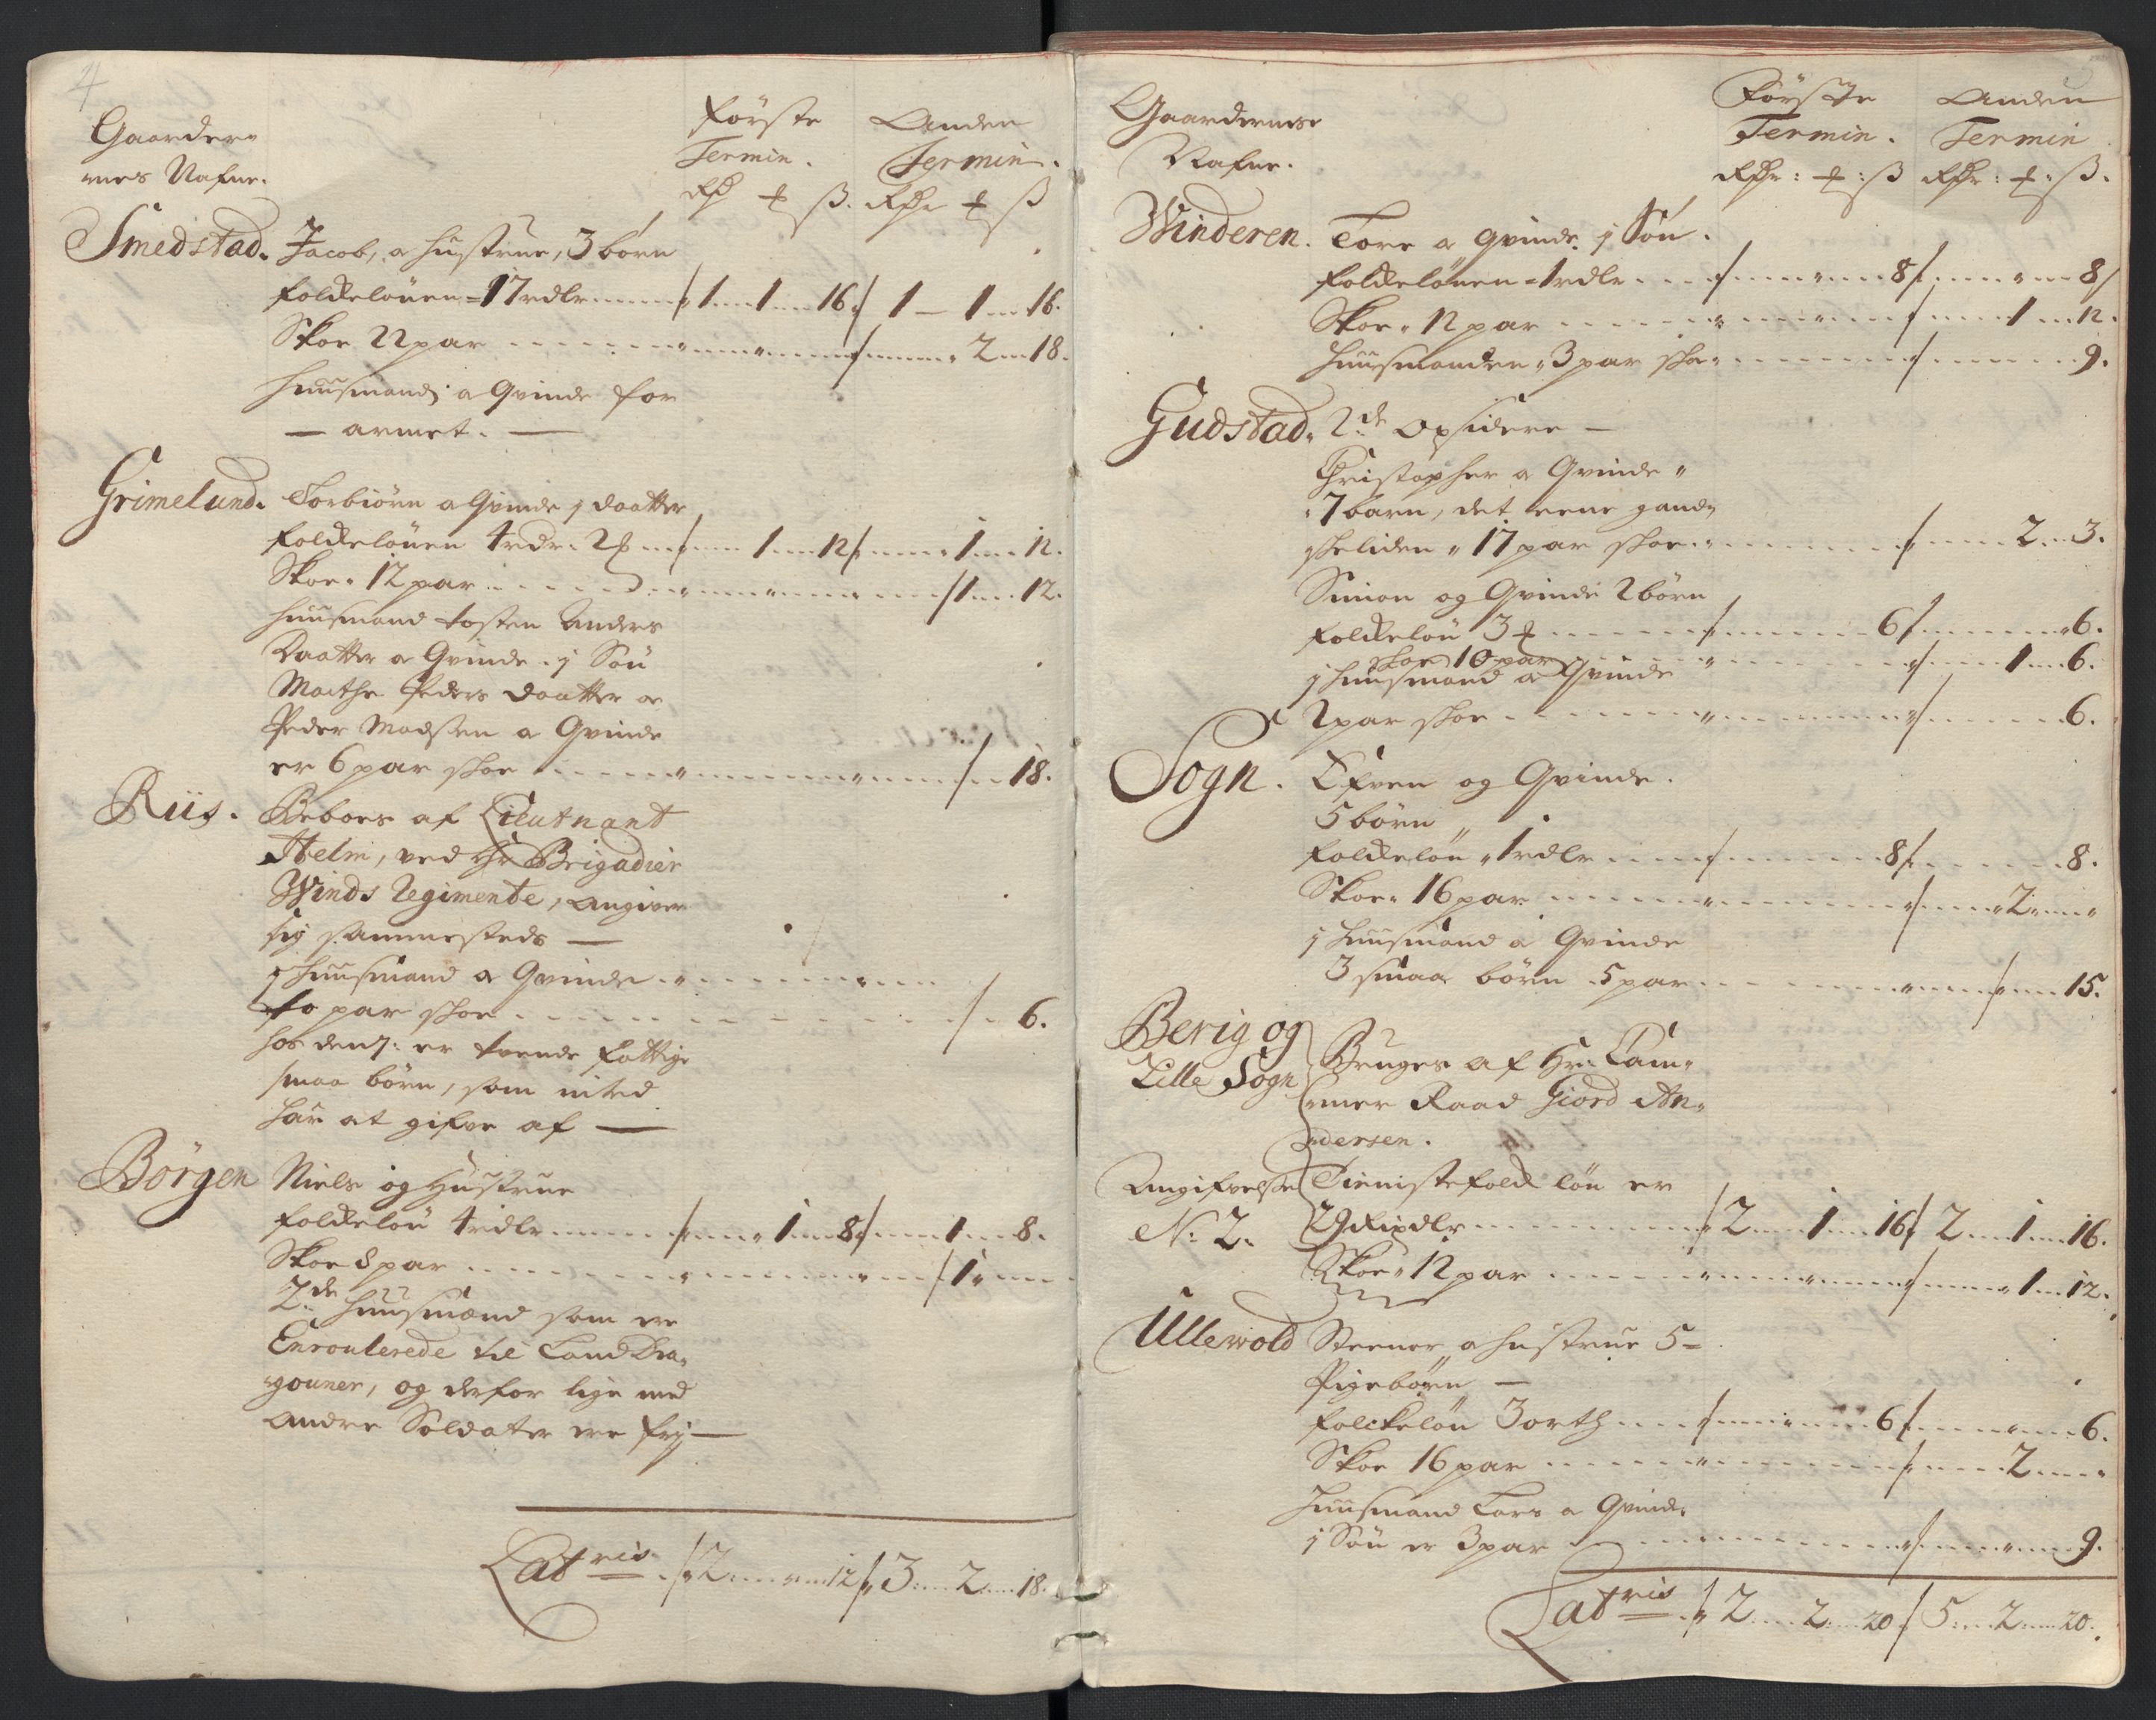 Gaarder-
nes Nafne.
Første
Termin.
Rdr ß.
Anden
Termin.
Rdr ß
Smedstad. Jacob, a hustrue, 3 børn
folckelønen = 17 rdlr 1 1 16 1 1 16.
Skoe 22 par 2 18.
Huusmand a Qvinde for
armet.
Grimelund. Torbiørn a Qvinde j daatter
folckelønen 4 rdr. 2 1 12 1 12.
Skoe 12 par 1 12.
Huusmand Tosten Anders
Daatter a Qvinde j Søn
Marthe Peders Daatter a
Peder Madsen a Qvinde
er 6 par skoe 18.
Riis. Beboes af Lieutnant
Helm, ved Hr Brigadier
Winds Regimente, angiver
sig sammesteds
j huusmand a Qvinde
to par skoe 6.
hos den: er tvende fattige
smaa børn, som inted
har at gifve af
Børgen Niels og Hustrue
folckeløn 4 rdlr 1 8 1 8.
Skoe 8 par 1
2de huusmænd som ere
Enroulerede til Land Dra-
gouner, og derfor lige med
andre Soldater ere frj
Latris 2 12 3 2 18.
Gaardernes
Nafne.
Første
Termin.
Rdr: ß
Anden
Termin
Rdr: ß.
Winderen. Tore a Qvinde j Søn.
folckelønen = 1 rdlr 8 8
Skoe 12 par 1 12.
Huusmanden 3 par skoe 9.
Gudstad. 2de Opsidere
Christopher a Qvinde
7 barn, det eene gand-
skeliden 17 par skoe 2 3.
Simon og Qvinde 2 børn
folckeløn 3 6 6.
skoe 10 par 1 6.
j huusmand a Qvinde
2 par skoe 6.
Sogn. Efven og Qvinde.
5 børn
folckeløn 1 rdlr 8 8.
Skoe 16 par 2
j huusmand a Qvinde
3 smaa børn 5 par 15.
Berig og
Lille Sogn
Bruges af Hr. Cam-
mer Raad Giord An-
dersen.
Angifvelse
No: 2.
Tienistefolck løn er
29 Rixdlr 2 1 16 2 1 16.
Skoe 12 par 1 12.
Ullewold Steenor a hustrue 5
Pigebørn
folckeløn 3 orth 6 6.
Skoe 16 par 2
Huusmand Lars a Qvinde
j Søn er 3 par 9.
Latris 2 2 20 5 2 20.